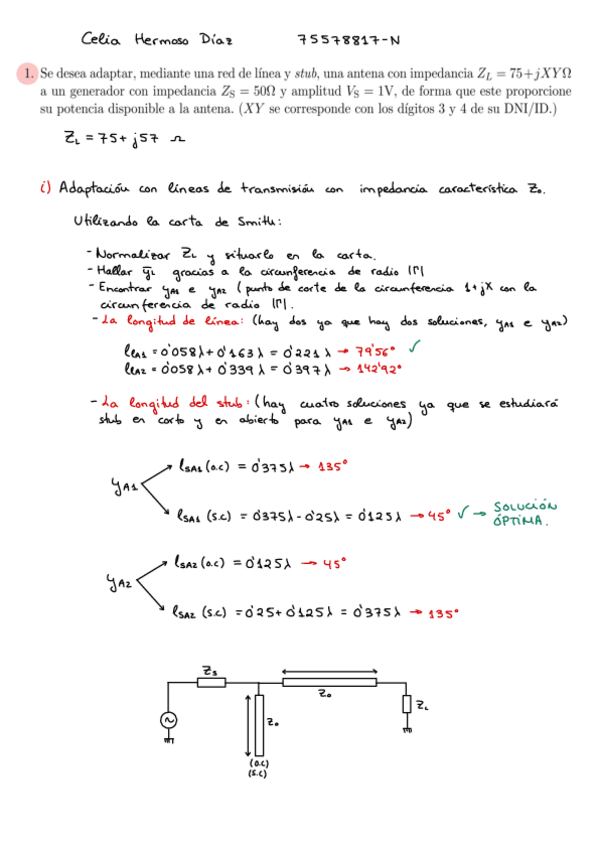 Celia Hermoso Díaz 75578817-N
1. Se desea adaptar, mediante una red de línea y stub, una antena con impedancia Z_L = 75+jXYΩ
a un generador con impedancia Z_S = 50Ω y amplitud V_S = 1V, de forma que este proporcione
su potencia disponible a la antena. (XY se corresponde con los dígitos 3 y 4 de su DNI/ID.)
Z_L = 75 + j57 Ω
i) Adaptación con líneas de transmisión con impedancia característica Z₀.
Utilizando la carta de Smith:
- Normalizar Z_L y situarlo en la carta.
- Hallar y̅_L gracias a la circunferencia de radio |Γ|
- Encontrar y_A1 e y_A2 (punto de corte de la circunferencia 1+jX con la
circunferencia de radio |Γ|.
- La longitud de línea: (hay dos ya que hay dos soluciones, y_A1 e y_A2)
l_LA1 = 0'058λ + 0'163λ = 0'221λ → 79'56° ✓
l_LA2 = 0'058λ + 0'339λ = 0'397λ → 142'92°
- La longitud del stub: (hay cuatro soluciones ya que se estudiará
stub en corto y en abierto para y_A1 e y_A2)
l_SA1 (o.c) = 0'375λ → 135°
y_A1
l_SA1 (s.c) = 0'375λ - 0'25λ = 0'125λ → 45° ✓ → SOLUCIÓN
ÓPTIMA.
l_SA2 (o.c) = 0'125λ → 45°
y_A2
l_SA2 (s.c) = 0'25 + 0'125λ = 0'375λ → 135°
Z_S
Z₀
Z_L
Z₀
(o.c)
(s.c)